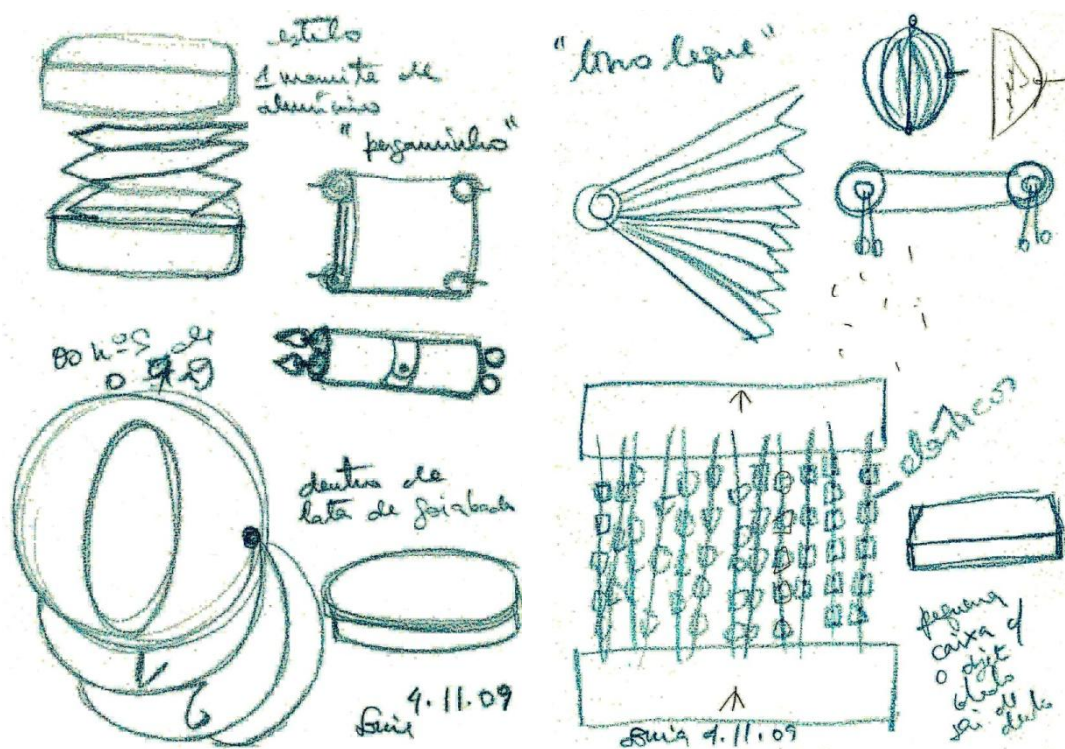 estilo
1 marmita de
alumínio
"pergaminho"
00 nºs de
0 a 9
0
1
2
dentro de
lata de goiabada
4.11.09
"livro leque"
elásticos
pequena
caixa c/
o objeto
sai de
dentro
4.11.09